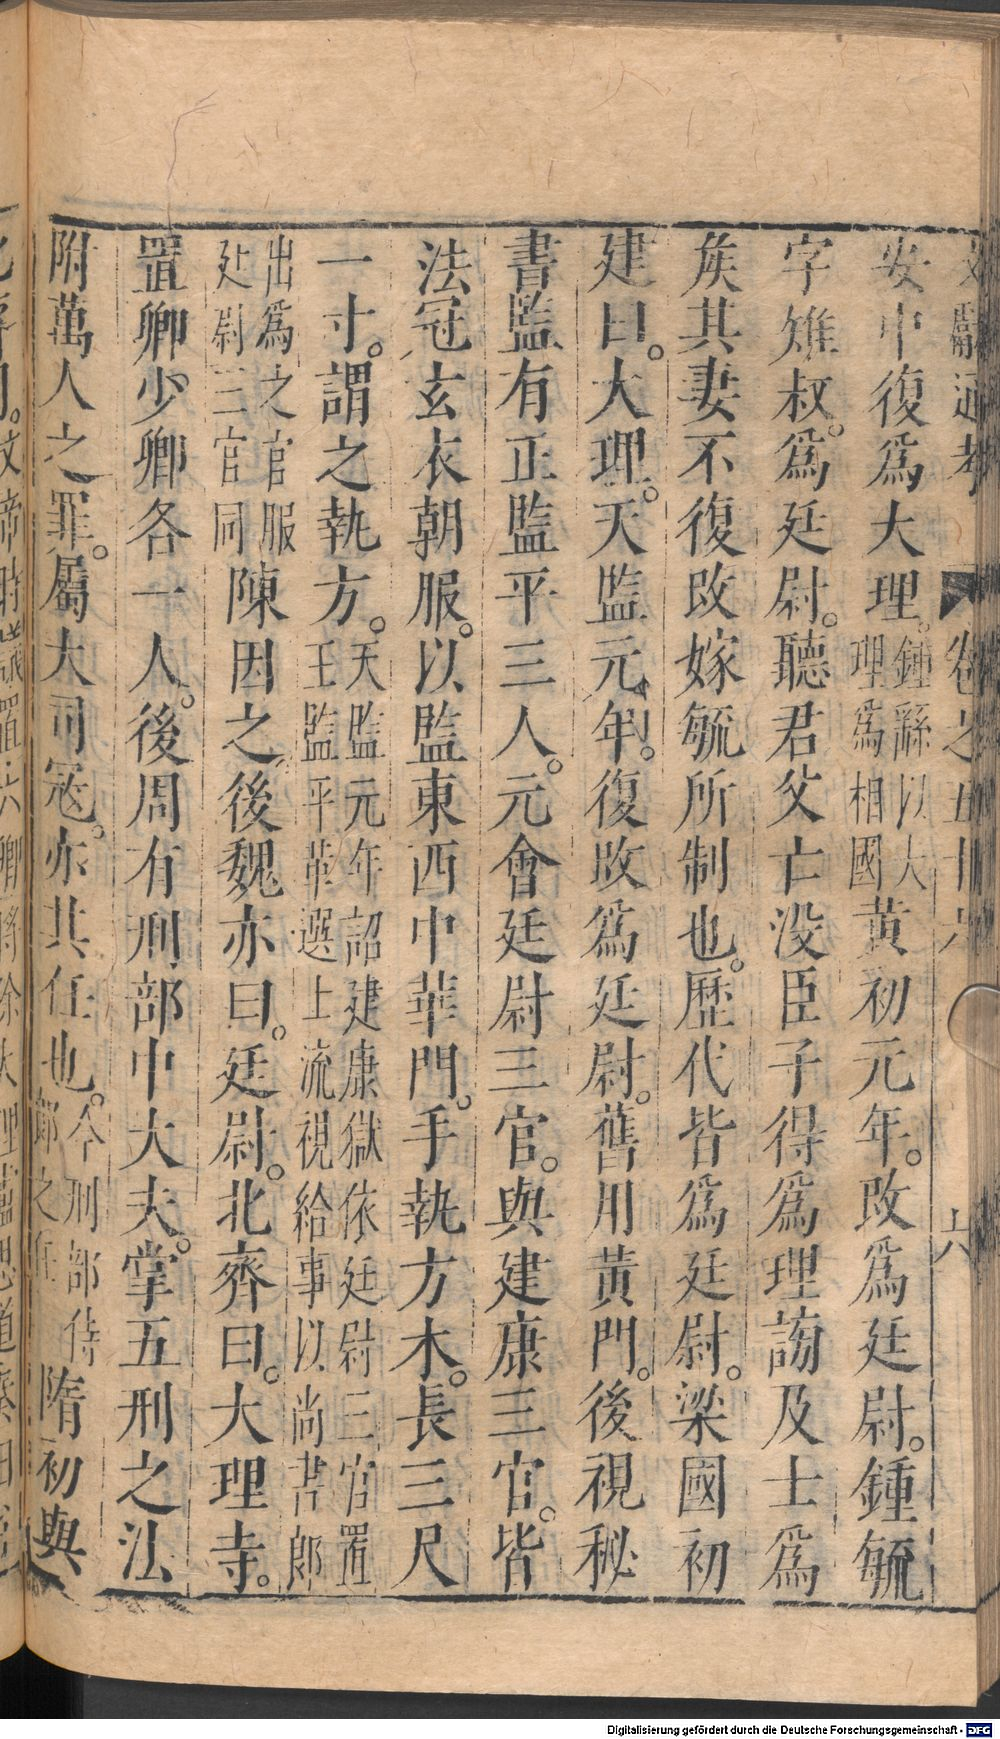 文獻通考 卷之五十六 六
安中復爲大理。鍾繇以大理爲相國黄初元年。改爲廷尉。鍾毓
字雉叔。爲廷尉。聽君父亡没臣子得爲理謗及士爲
矦其妻不復改嫁毓所制也。歷代皆爲廷尉。梁國初
建曰。大理。天監元年。復改爲廷尉。舊用黄門。後視秘
書監有正監平三人。元會廷尉三官。與建康三官。皆
法冠玄衣朝服。以監東西中華門。手執方木。長三尺
一寸。謂之執方。天監元年詔建康獄依廷尉三官置王監平革選上流視給事以尚書郎
出爲之官服廷尉三官同陳因之後魏亦曰。廷尉。北齊曰。大理寺。
置卿少卿各一人。後周有刑部中大夫。掌五刑之法
附萬人之罪。屬大司冦。亦其任也。今刑部侍郎之任隋初與
Digitalisierung gefördert durch die Deutsche Forschungsgemeinschaft - DFG